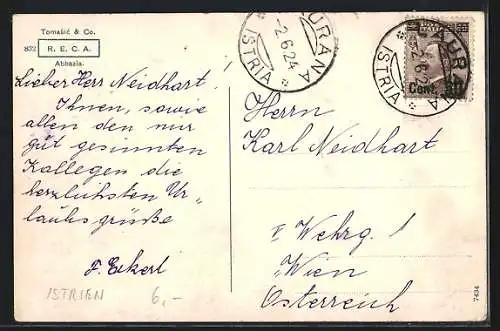 Tomašić & Co.
832 R. E. C. A.
Abbazia.
Lieber Herr Neidhart!
Ihnen, sowie
allen den mir
gut gesinnten
Kollegen die
herzlichsten Ur„
laubsgrüße
F. Eckerl
ISTRIEN 6,-
URANA
-2.6.24
ISTRIA
URANA
-2.6.2
ISTRIA
Cent.
Herrn
Karl Neidhart
I Wehrg. 1
Wien
Österreich
7434